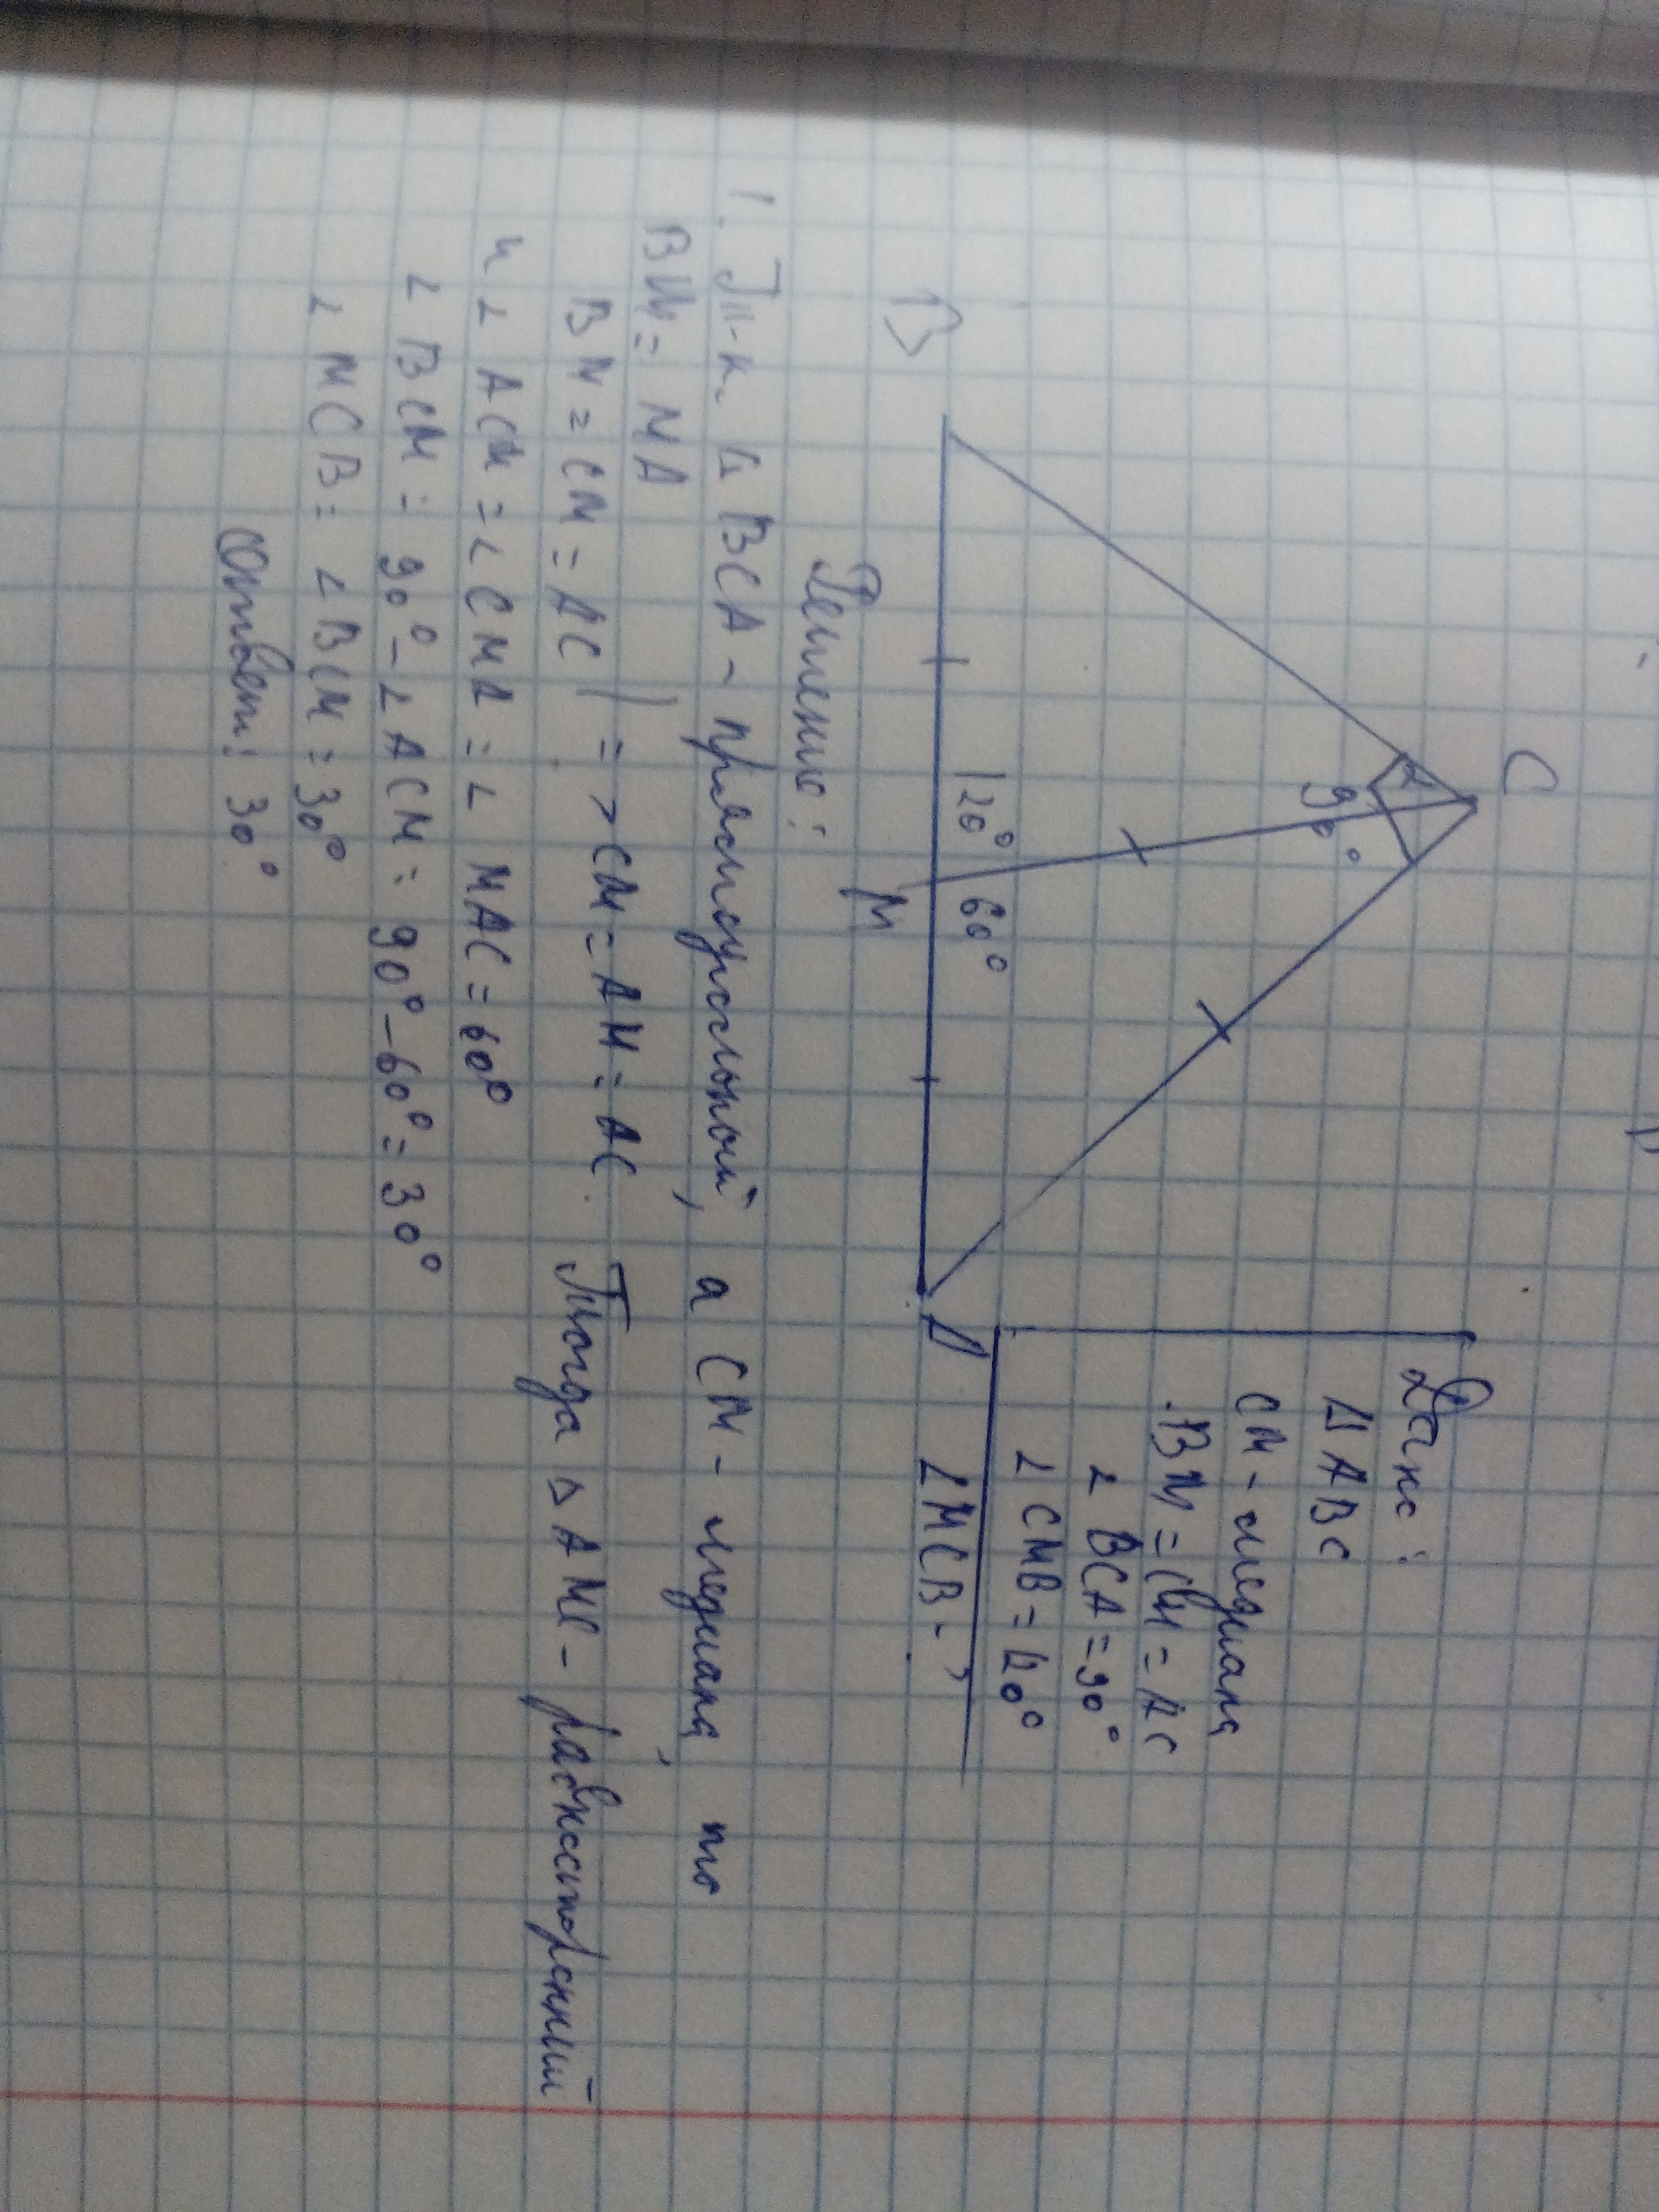 C
90°
120°
60°
B
M
A
Дано:
△ABC
CM - медиана
BM = CM = AC
∠BCA = 90°
∠CMB = 120°
∠MCB - ?
Решение:
1. Т.к. △BCA - прямоугольный, а CM - медиана, то
BM = MA
BM = CM = AC | => CM = AM = AC. Тогда △AMC - равносторонний
и ∠ACM = ∠CMA = ∠MAC = 60°
∠BCM = 90° - ∠ACM = 90° - 60° = 30°
∠MCB = ∠BCM = 30°
Ответ: 30°